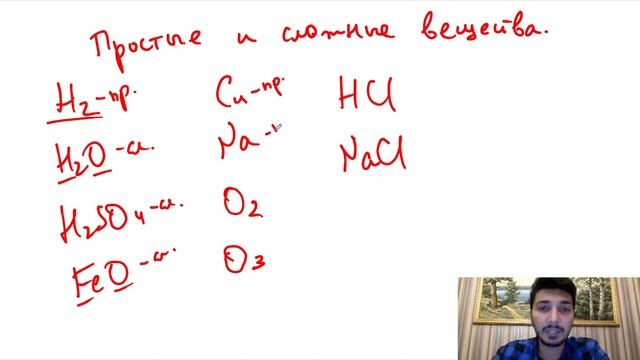 Простые и сложные вещества.
H₂-пр. Cu-пр. HCl
H₂O-сл. Na- NaCl
H₂SO₄-сл. O₂
FeO-сл. O₃